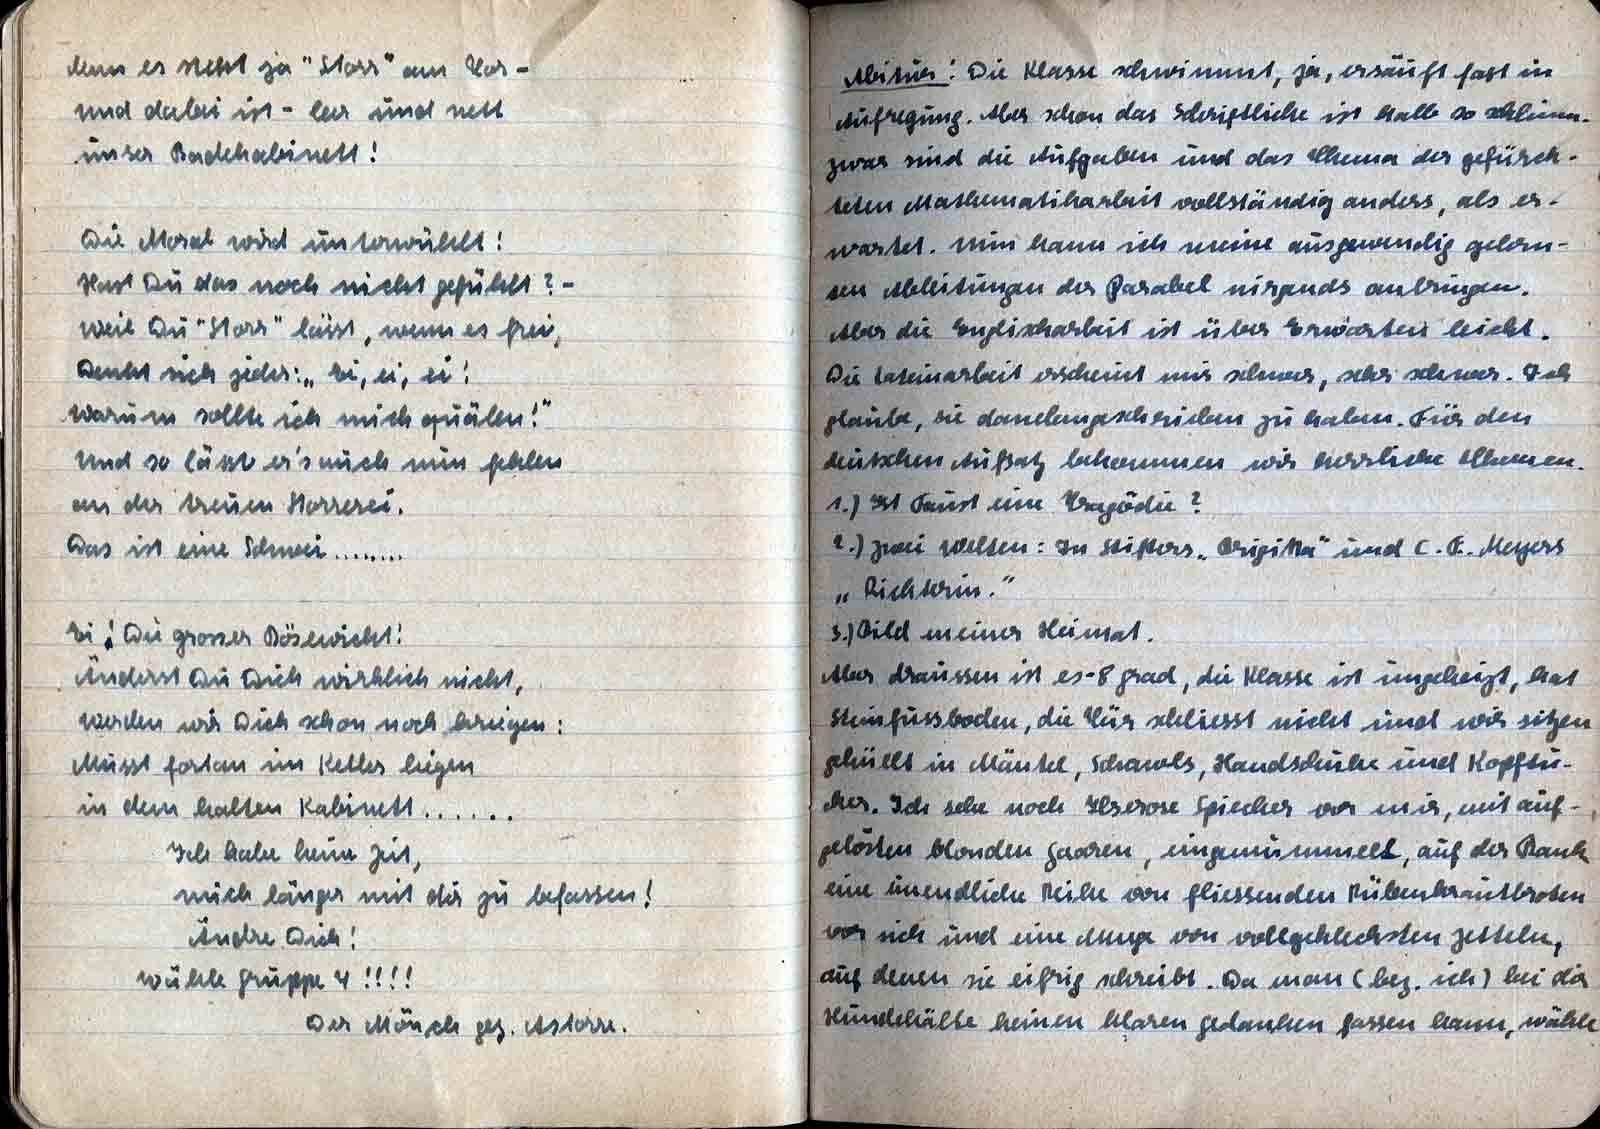 denn es steht ja "Storr" am Tor -
und dabei ist - leer und nett
unser Badekabinett!
Die Moral wird unterwühlt!
Hast Du das noch nicht gefühlt? -
Weil Du "Storr" lässt, wenn es frei,
Denkt sich jeder: „Ei, ei, ei!
Warum sollte ich mich quälen!"
Und so lässt er's auch nun fehlen
an der treuen Storrerei.
Das ist eine Schwei........
Ei! Du grosser Bösewicht!
Änderst Du Dich wirklich nicht,
werden wir Dich schon noch kriegen:
Musst fortan im Keller liegen
in dem kalten Kabinett......
Ich habe keine Zeit,
mich länger mit dir zu befassen!
Ändre Dich!
Wähle Gruppe 4!!!!
Der Mönch gez. Astorre.
Abitur! Die Klasse schwimmt, ja, ersäuft fast in
Aufregung. Aber schon das Schriftliche ist halb so schlimm.
Zwar sind die Aufgaben und das Thema der gefürch-
teten Mathematikarbeit vollständig anders, als er-
wartet. Nun kann ich meine auswendig gelern-
ten Ableitungen der Parabel nirgends anbringen.
Aber die Englischarbeit ist über Erwarten leicht.
Die Lateinarbeit erscheint mir schwer, sehr schwer. Ich
glaube, sie danebengeschrieben zu haben. Für den
deutschen Aufsatz bekommen wir herrliche Themen.
1.) Ist Faust eine Tragödie?
2.) Zwei Welten: In Stifters „Brigitta" und C. F. Meyers
„Richterin."
3.) Bild meiner Heimat.
Aber draussen ist es -8 grad, die Klasse ist ungeheizt, hat
Steinfussboden, die Tür schliesst nicht und wir sitzen
gehüllt in Mäntel, Schawls, Handschuhe und Kopftü-
cher. Ich sehe noch Ilserose Spiecker vor mir, mit auf-
gelösten blonden Haaren, eingemummelt, auf der Bank
eine unendliche Reihe von fliessenden Rübenkrautbroten
vor sich und eine Menge von vollgeklecksten Zetteln,
auf denen sie eifrig schreibt. Da man (bez. ich) bei der
Hundekälte keinen klaren Gedanken fassen kann, wähle